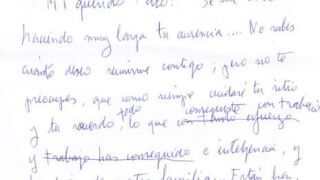 Mi querido
haciendo muy larga tu ausencia.... No sabes
cuánto deseo reunirme contigo; pero no te
preocupes, que como siempre cuidaré tu sitio
todo conseguiste con trabajo
y tu recuerdo, lo que con tanto esfuerzo
y trabajo has conseguido e inteligencia, y
familia. Están bien